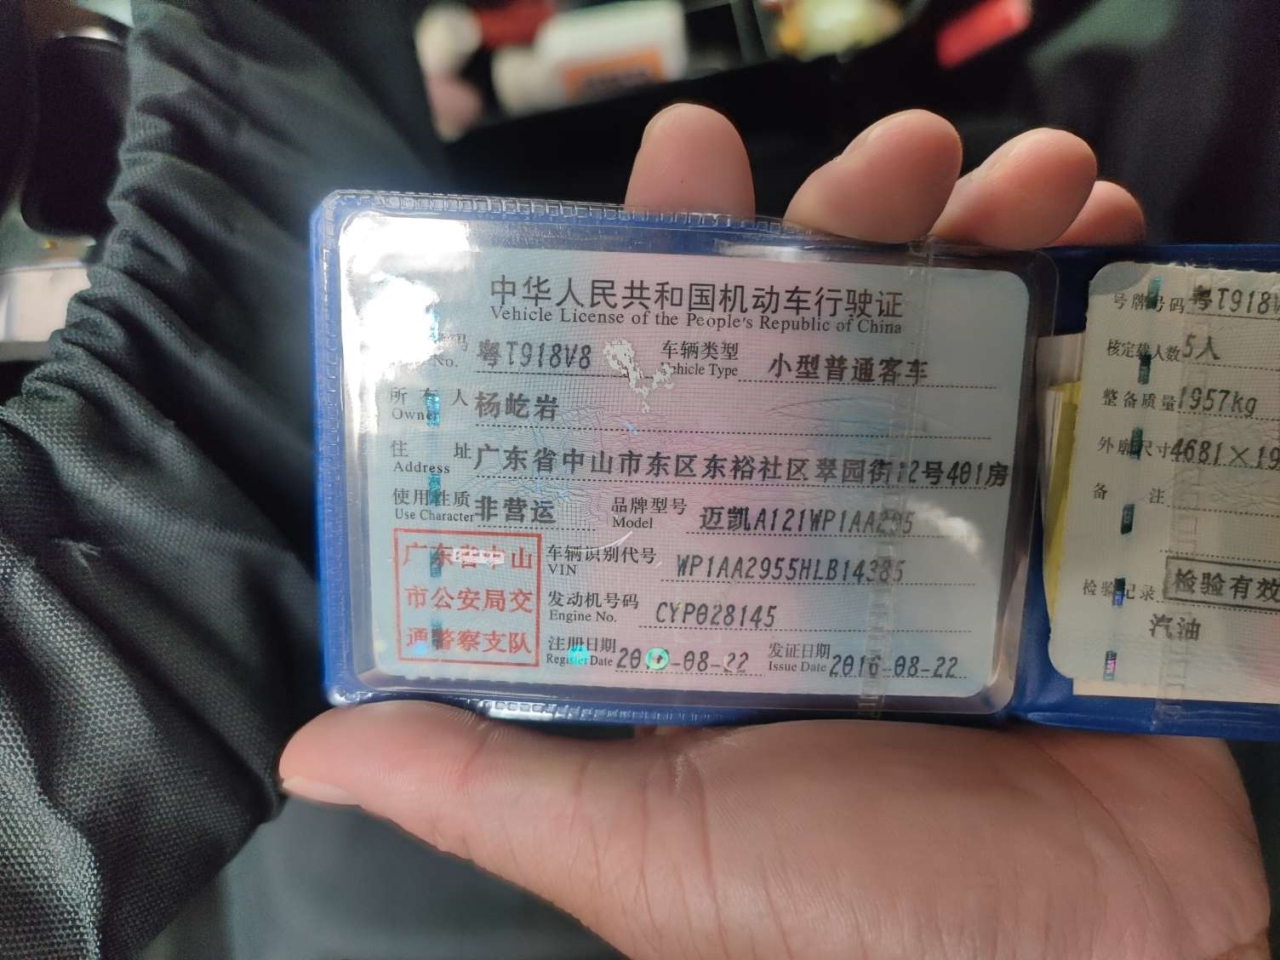 中华人民共和国机动车行驶证
Vehicle License of the People's Republic of China
码 粤T918V8 车辆类型 小型普通客车
No. Vehicle Type
所有人 杨屹岩
Owner
住址 广东省中山市东区东裕社区翠园街12号401房
Address
使用性质 非营运 品牌型号 迈凯A121WP1AA295
Use Character Model
车辆识别代号 WP1AA2955HLB14385
VIN
发动机号码 CYP028145
Engine No.
注册日期 2016-08-22 发证日期 2016-08-22
Register Date Issue Date
广东省中山
市公安局交
通警察支队
号牌号码 粤T918V
核定载人数 5人
整备质量 1957kg
外廓尺寸 4681×19
备注
检验记录 检验有效
汽油